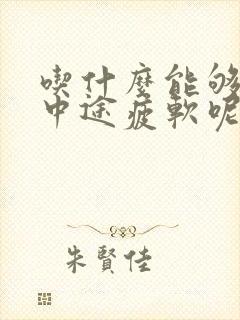 喫什麼能够
中途疲軟呢
朱賢佳